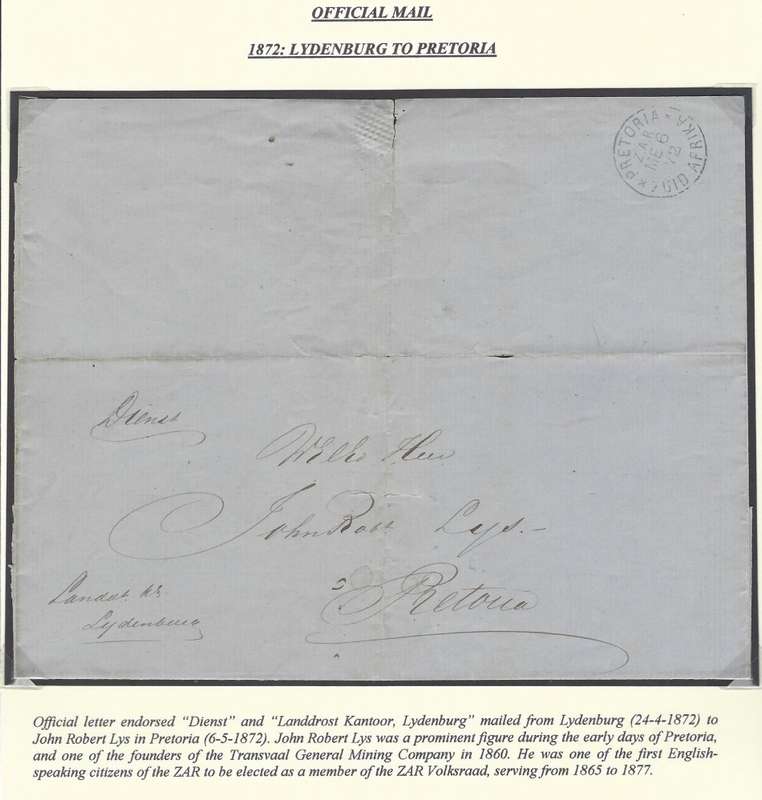 OFFICIAL MAIL
1872: LYDENBURG TO PRETORIA
PRETORIA
ZAR
ME 6
72
ZUID AFRIKA
Dienst
WelEd Heer
John Robt Lys.-
Pretoria
Landdt Kr
Lydenburg
Official letter endorsed “Dienst” and “Landdrost Kantoor, Lydenburg” mailed from Lydenburg (24-4-1872) to
John Robert Lys in Pretoria (6-5-1872). John Robert Lys was a prominent figure during the early days of Pretoria,
and one of the founders of the Transvaal General Mining Company in 1860. He was one of the first English-
speaking citizens of the ZAR to be elected as a member of the ZAR Volksraad, serving from 1865 to 1877.